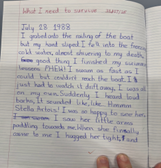 What I need to survive survive
July 28 1988
I grabed onto the railing of the boat
but my hand sliped. I fell into the freezing
cold water, almost drowning to my death.
good thing I finished my swimming
lessons. PHEW! I swam as fast as I
could but couldn't reach the boat. I
just had to watch it drift away. I was all
on my own. Suddenly, I heard loud
barks, It sounded like, like. Hammm
Stella Arbus! I was so happy to see her
I saw her little arms
paddling towards me. When she finnally
came to me I hugged her tight and